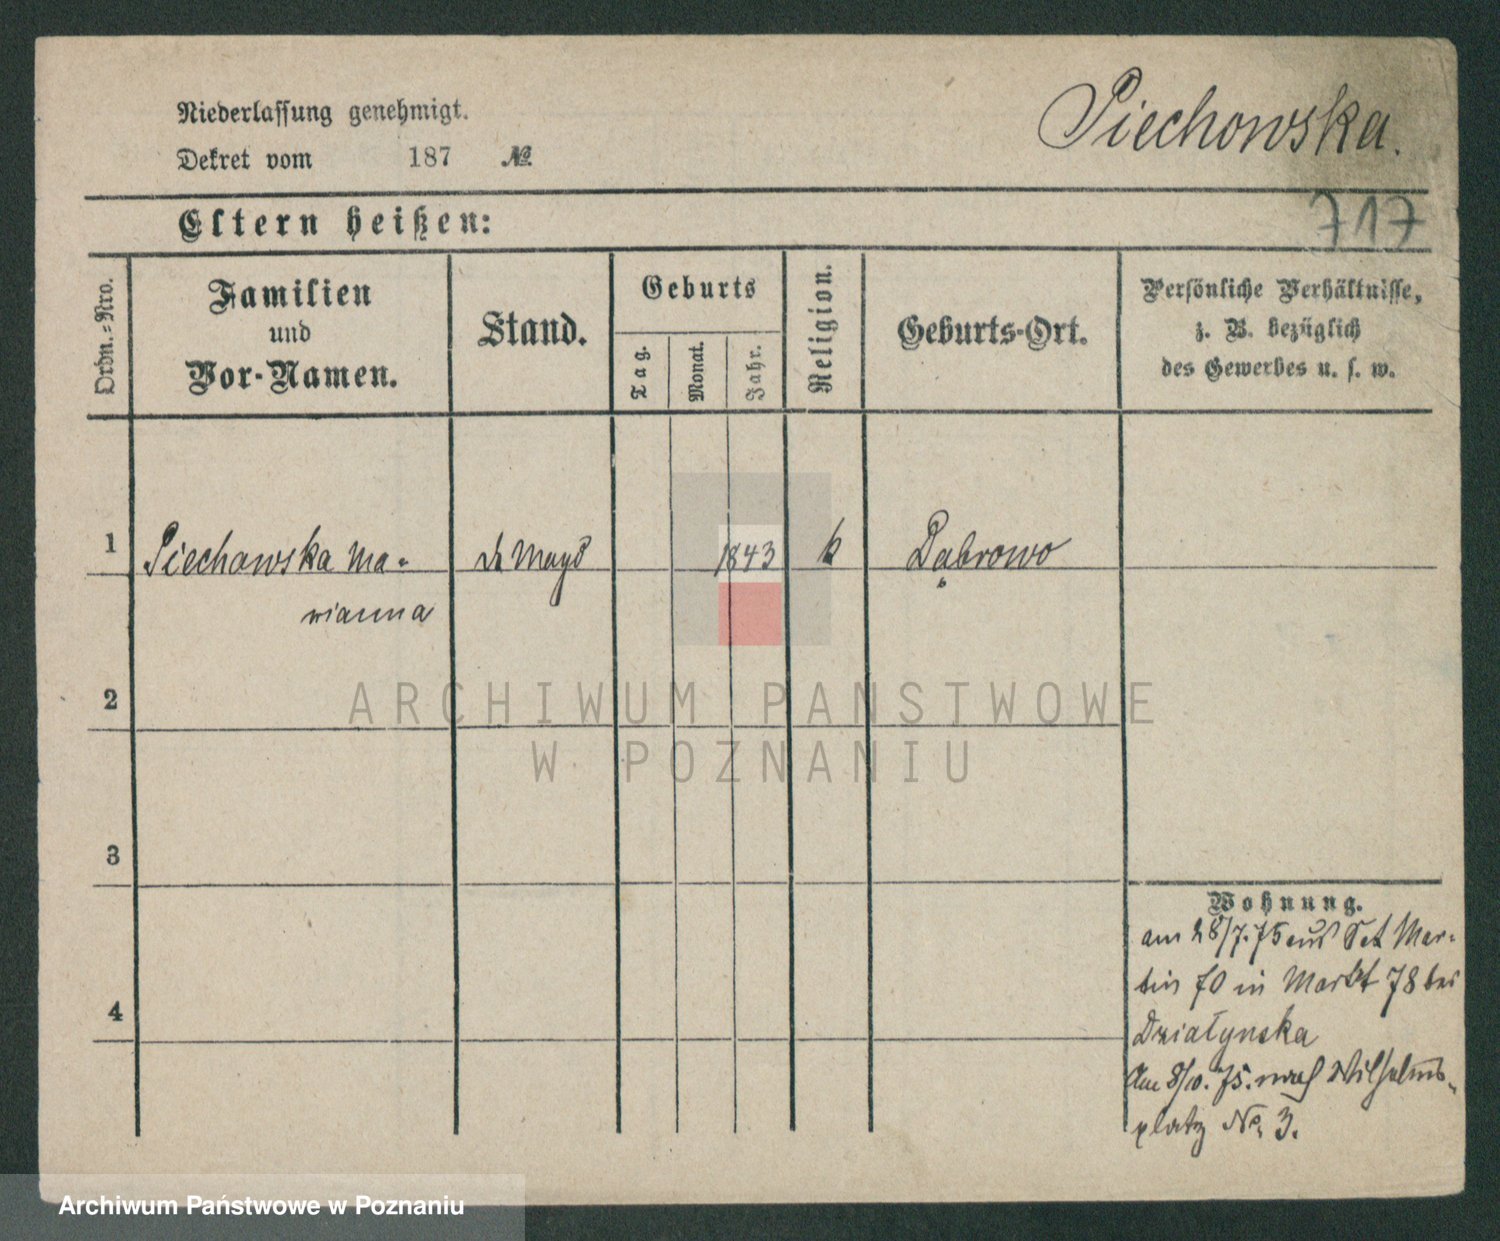 Niederlassung genehmigt.
Dekret vom 187 №
Piechowska.
717
Eltern heißen:
Ordn.=Nro.
Familien
und
Vor-Namen.
Stand.
Geburts
Tag.
Monat.
Jahr.
Religion.
Geburts-Ort.
Persönliche Verhältnisse,
z. B. bezüglich
des Gewerbes u. s. w.
1 Piechowska Ma- 1843 k Dąbrowo
rianna
2
3
4
Wohnung.
am 28/7.75 aus Sct Mar-
tin 70 in Markt 78 bei
Działynska
Am 8/10. 75. nach Wilhelms-
platz No. 3.
ARCHIWUM PANSTWOWE
W POZNANIU
Archiwum Państwowe w Poznaniu